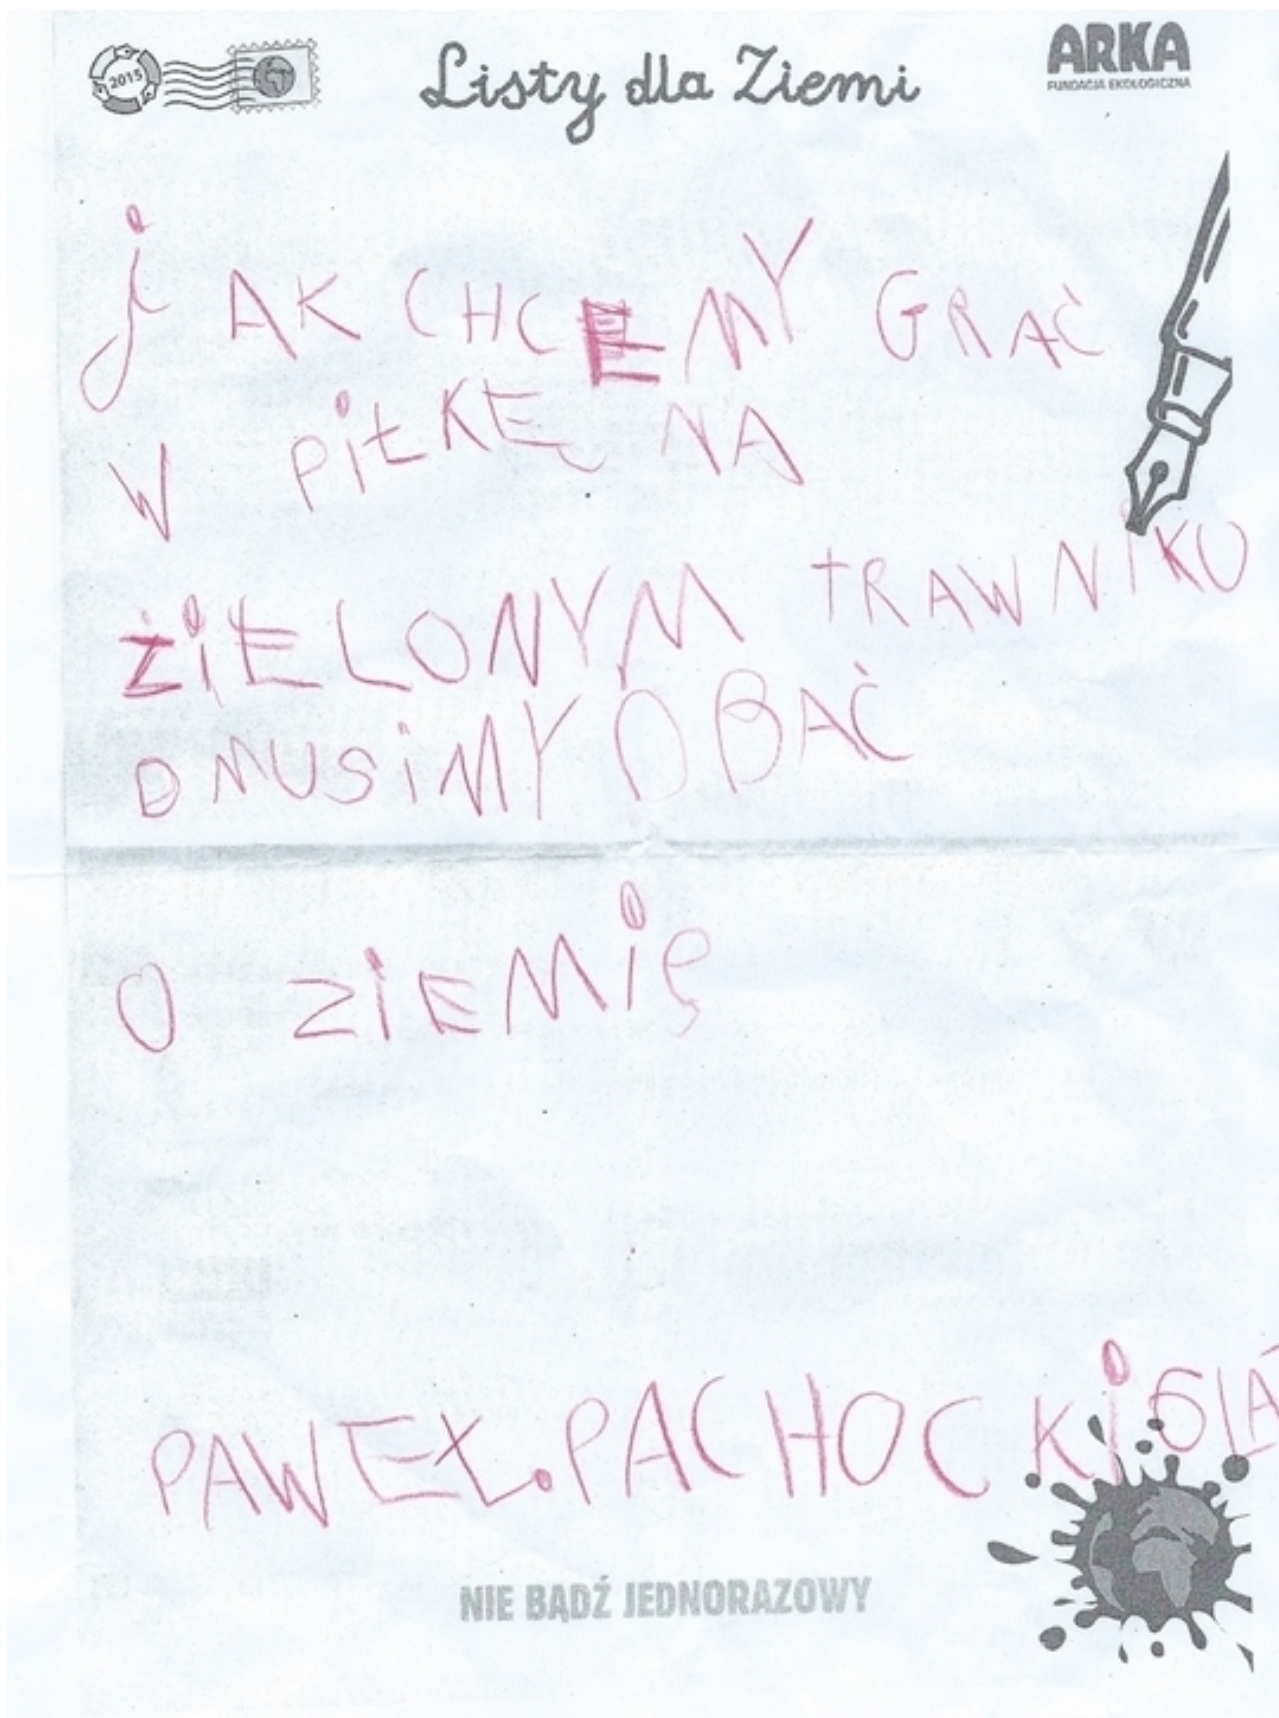 2015
Listy dla Ziemi
ARKA
FUNDACJA EKOLOGICZNA
jAK CHCEMY GRAĆ
W PiŁKĘ NA
ŻiELONYM TRAWNiKU
D MUSiMY OBAĆ
O ZiEMię
PAWEŁ. PACHOCKi 6LA
NIE BĄDŹ JEDNORAZOWY